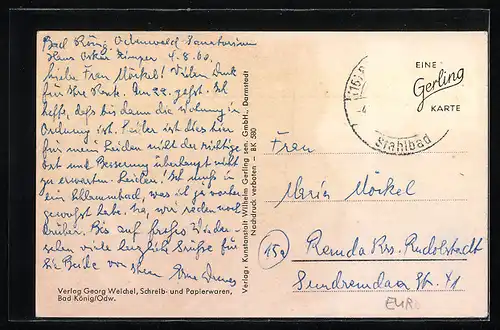 Bad König, Odenwald-Sanatorium
Hans Oskar Zimper 4.8.60.
Liebe Frau Möckel! Vielen Dank
für Ihre Karte. Am 22. geht's. Ich
hoffe, daß bis dann die Wohnung in
Ordnung ist. Leider ist dies hier
für mein Leiden nicht der richtige
Ort und Besserung überhaupt nicht
zu erwarten. Leider! Ich muß in
ein Schlammbad, was ich ja vorher
gewußt habe. Na, wir reden noch
drüber. Bis auf frohes Wieder-
sehen viele herzliche Grüße für
Sie Beide von Ihrem
Verlag Georg Weichel, Schreib- und Papierwaren,
Bad König/Odw.
Verlag: Kunstanstalt Wilhelm Gerling sen. GmbH., Darmstadt
Nachdruck verboten – BK 580
EINE
Gerling
KARTE
(16)
Stahlbad
Frau
Maria Möckel
15a
Remda Krs. Rudolstadt
Sundremdaer Str. 41
EUR